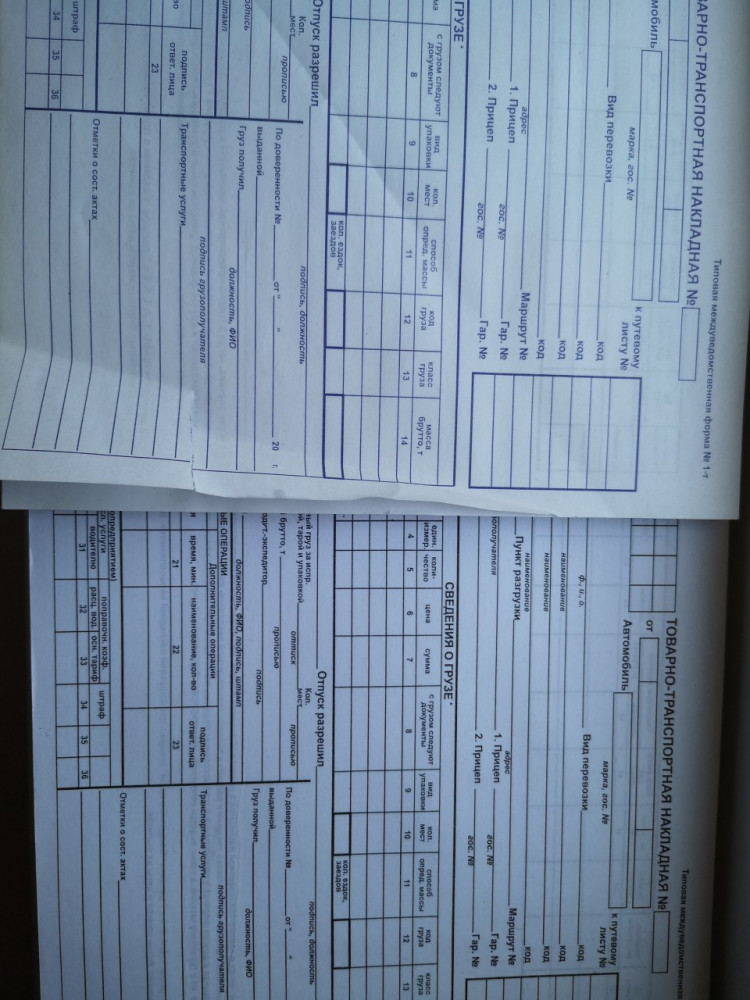 Типовая междуведомственная форма № 1-т
ВАРНО-ТРАНСПОРТНАЯ НАКЛАДНАЯ №
мобиль
марка, гос. №
к путевому
листу №
Вид перевозки
код
код
код
код
адрес
Маршрут №
1. Прицеп
гос. №
Гар. №
2. Прицеп
гос. №
Гар. №
ГРУЗЕ *
ма
с грузом следуют
документы
вид
упаковки
кол.
мест
способ
опред. массы
код
груза
класс
груза
масса
брутто, т
8
9
10
11
12
13
14
кол. ездок,
заездов
Отпуск разрешил
подпись, должность
Кол.
мест
прописью
По доверенности №
от "
"
20
г.
выданной
Груз получил
должность, ФИО
подпись
штамп
подпись грузополучателя
подпись
ответ. лица
23
Транспортные услуги
штраф
34
35
36
Отметки о сост. актах
Типовая междуведомственная
ТОВАРНО-ТРАНСПОРТНАЯ НАКЛАДНАЯ №
от
Автомобиль
марка, гос. №
к путевому
листу №
ф., и., о.
Вид перевозки
код
наименование
код
наименование
код
наименование
код
Пункт разгрузки
адрес
Маршрут №
1. Прицеп
гос. №
Гар. №
2. Прицеп
гос. №
Гар. №
СВЕДЕНИЯ О ГРУЗЕ *
един.
измер.
коли-
чество
цена
сумма
с грузом следуют
документы
вид
упаковки
кол.
мест
способ
опред. массы
код
груза
класс
груза
4
5
6
7
8
9
10
11
12
13
кол. ездок,
заездов
Отпуск разрешил
подпись, должность
ный груз за испр.
й, тарой и упаковкой
оттиск
Кол.
мест
прописью
брутто, т
прописью
По доверенности №
от "
"
выданной
дит.-экспедитор
подпись
Груз получил
должность, ФИО
должность, ФИО, подпись, штамп
подпись грузополучателя
ЫЕ ОПЕРАЦИИ
Дополнительные операции
время, мин.
наименование, кол-во
подпись
ответ. лица
21
22
23
Транспортные услуги
опредприятием)
услуги
водителю
поправочн. коэфф.
расц. вод.
осн. тариф
штраф
31
32
33
34
35
36
Отметки о сост. актах